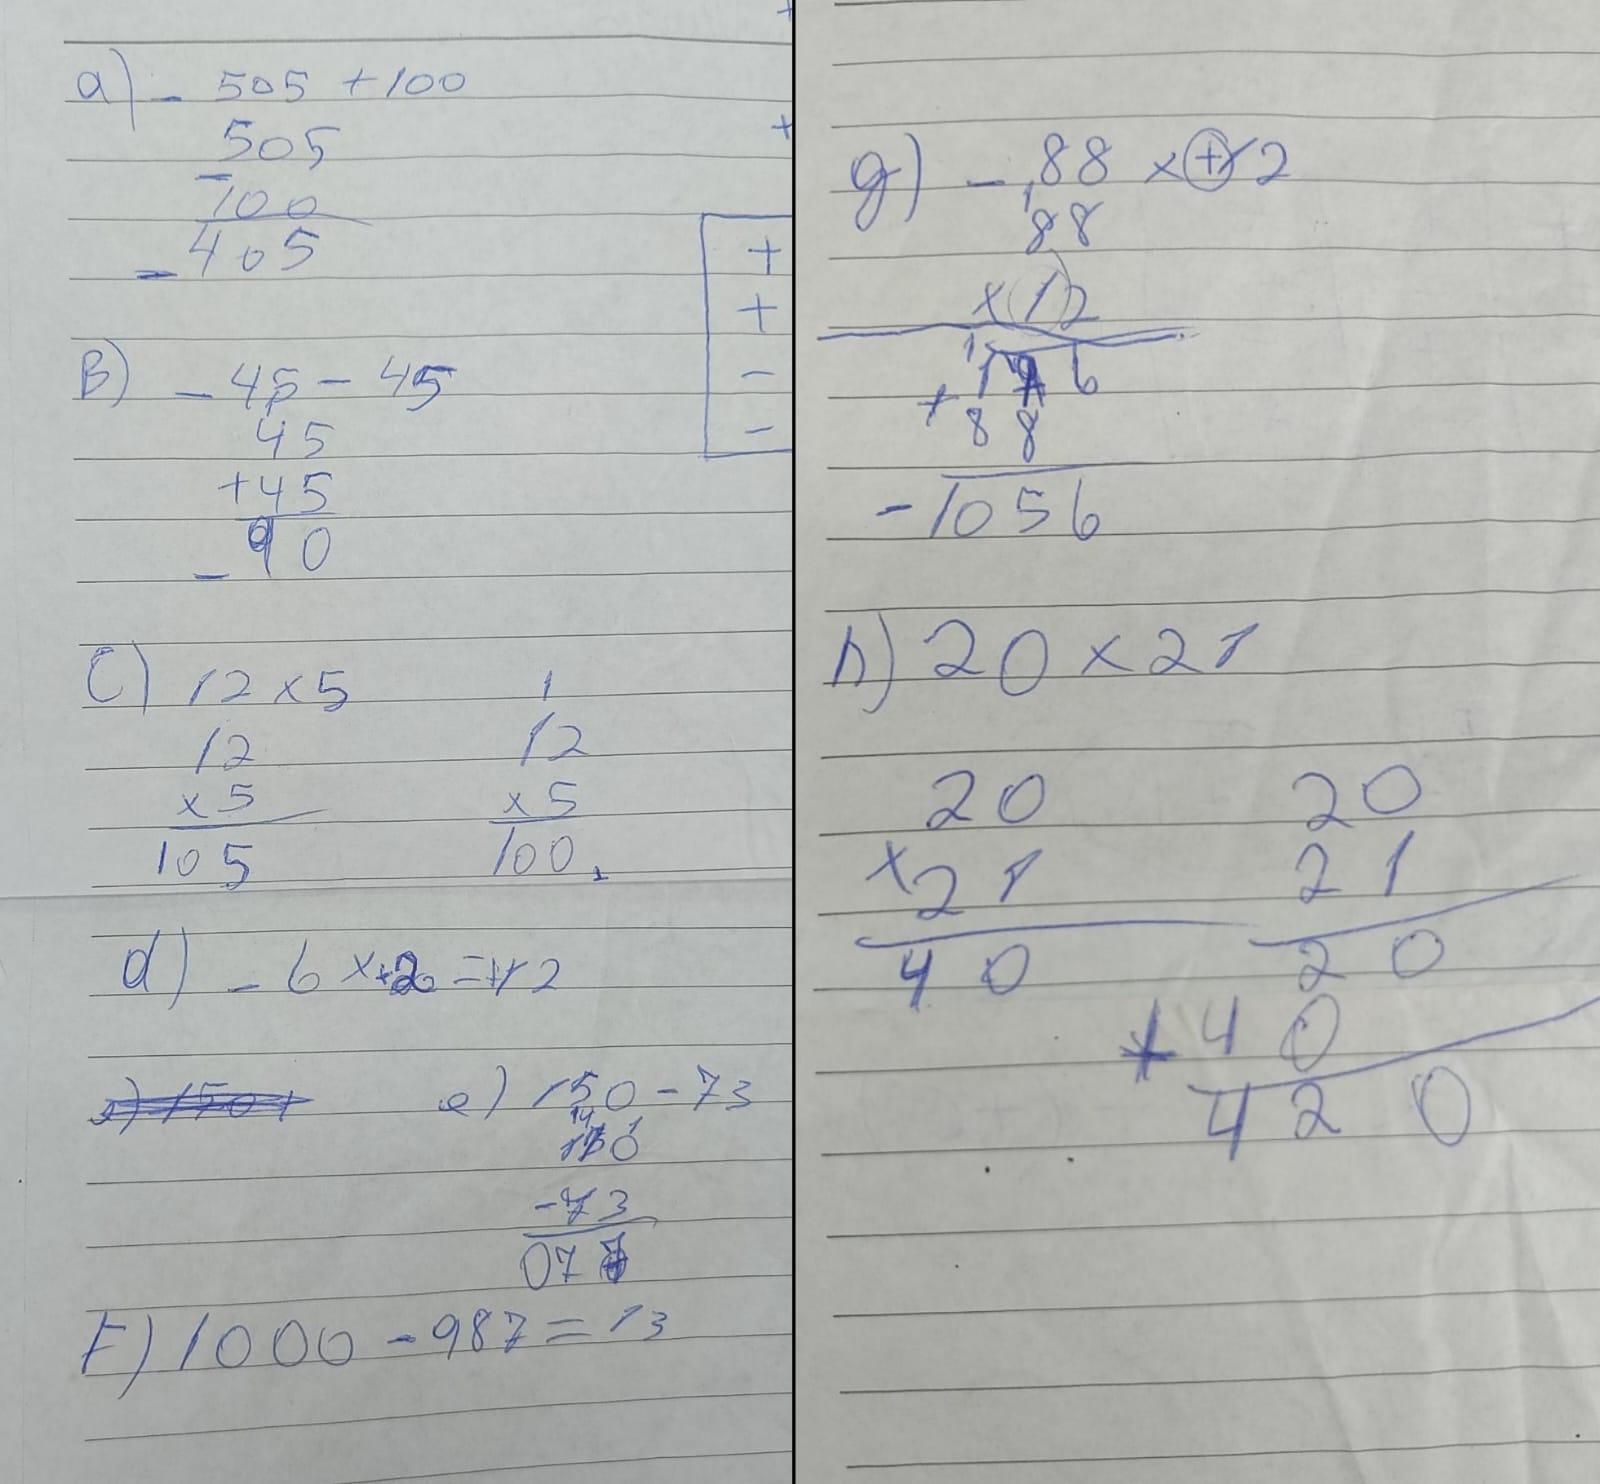 a) - 505 + 100
505
- 100
- 405
B) - 45 - 45
45
+45
- 90
+
+
-
-
C) 12 x 5
12
x 5
105
1
12
x 5
100
d) - 6 x +2 = +12
e) 150 +
e) 150 - 73
14 1
150
- 73
077
F) 1000 - 987 = 13
g) - 88 x +12
1
88
x 12
1
176
+ 88
- 1056
h) 20 x 21
20
x 21
40
20
21
20
+ 40
420